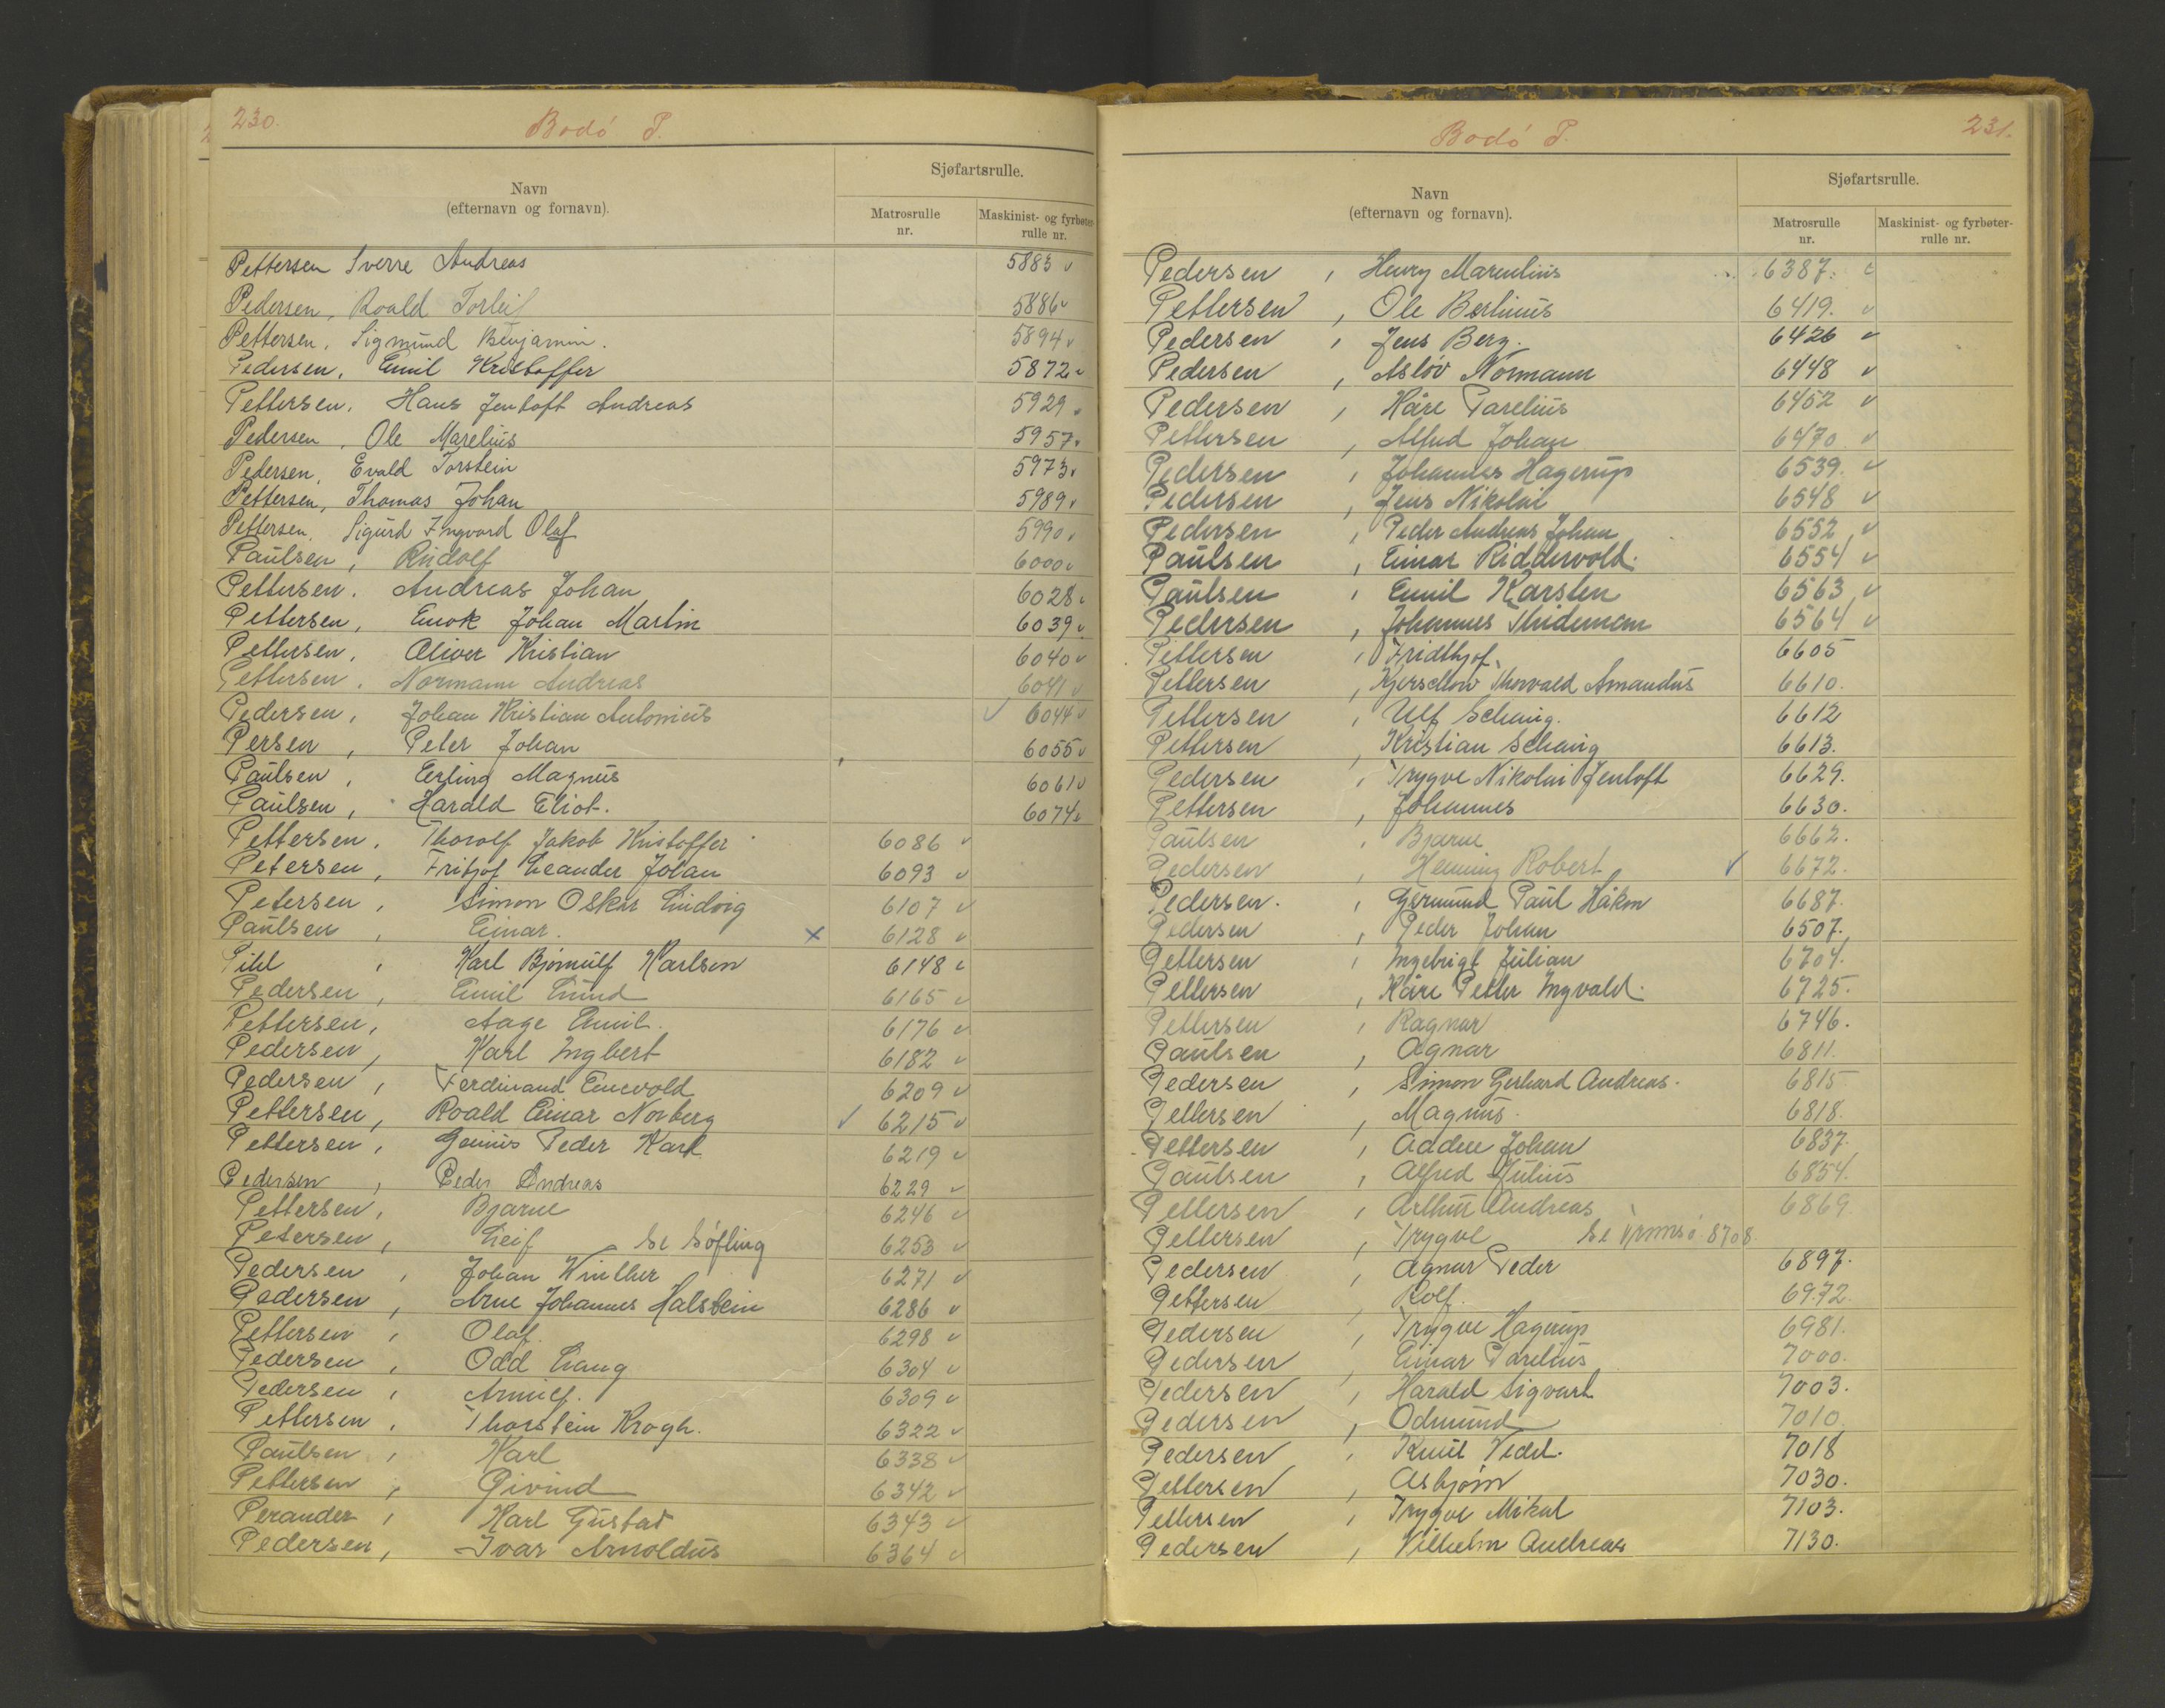 230.
Bodó P.
Navn
(efternavn og fornavn).
Sjøfartsrulle.
Matrosrulle
nr.
Maskinist- og fyrbøter-
rulle nr.
Pettersen Sverre Andreas 5883 v
Pedersen, Roald Torleif 5886 v
Pettersen, Sigmund Benjamin. 5894 v
Pedersen, Emil Kristoffer 5872 v
Pettersen, Hans Jentoft Andreas 5929 v
Pedersen, Ole Marelius 5957 v
Pedersen, Evald Torstein 5973 v
Pettersen, Thomas Johan 5989 v
Pettersen, Sigurd Ingvard Olaf 5990 v
Paulsen, Rudolf 6000 v
Pettersen, Andreas Johan 6028 v
Pettersen, Enok Johan Martin 6039 v
Pettersen, Oliver Kristian 6040 v
Pettersen, Normann Andreas 6041 v
Pedersen, Johan Kristian Antonius v 6044 v
Persen, Peter Johan 6055 v
Paulsen, Erling Magnus 6061 v
Paulsen, Harald Eliot. 6074 v
Pettersen, Thorolf Jakob Kristoffer 6086 v
Petersen, Fritjof Leander Johan 6093 v
Petersen, Simon Oskar Ludvig 6107 v
Paulsen, Einar. x 6128 v
Pihl, Karl Bjørnulf Karlsen 6148 v
Pedersen, Emil Lund 6165 v
Pettersen, Aage Emil. 6176 v
Pedersen, Karl Ingbert 6182 v
Pedersen, Ferdinand Enevold 6209 v
Pettersen, Roald Einar Norberg v 6215 v
Pettersen, Peder Karl 6219 v
Pedersen, Peder Andreas 6229 v
Pettersen, Bjarne 6246 v
Petersen, Leif Se Søfting 6253 v
Pedersen, Johan Winther 6271 v
Pedersen, Arne Johannes Halstein 6286 v
Pettersen, Olaf. 6298 v
Pedersen, Odd Haug 6304 v
Pedersen, Arnulf. 6309 v
Pettersen, Thorstein Krogh. 6322 v
Paulsen, Karl 6338 v
Pettersen, Øivind 6342 v
Perander, Karl Gustav 6343 v
Pedersen, Ivar Arnoldus 6364 v
231.
Bodó P.
Navn
(efternavn og fornavn).
Sjøfartsrulle.
Matrosrulle
nr.
Maskinist- og fyrbøter-
rulle nr.
Pedersen, Henry Marselius 6387. v
Pettersen, Ole Berlinus 6419. v
Pedersen, Jens Berg. 6426 v
Pedersen, Asløv Normann 6448 v
Pedersen, Kåre Parelius 6452 v
Pettersen, Alfred Johan 6470 v
Pedersen, Johannes Hagerup 6539. v
Pedersen, Jens Nikolai 6548 v
Pedersen, Peder Andreas Johan 6552 v
Paulsen, Einar Riddervold. 6554 v
Paulsen, Emil Karsten 6563 v
Pedersen, Johannes Thidemann 6564 v
Pettersen, Fridthjof 6605
Pettersen, Kjerschow Thorvald Amandus 6610.
Pettersen, Ulf Schanig. 6612
Pettersen, Kristian Schanig 6613.
Pedersen, Trygve Nikolai Jentoft 6629.
Pettersen, Johannes 6630.
Paulsen, Bjarne 6662.
Pedersen, Henning Robert v 6672.
Pedersen, Germund Paul Håkon 6687.
Pedersen, Peder Johan 6507.
Pettersen, Ingebrigt Julian 6704.
Pettersen, Kåre Petter Ingvald. 6725.
Pettersen, Ragnar 6746.
Paulsen, Agnar 6811.
Pedersen, Simon Gerhard Andreas. 6815
Pettersen, Magnus. 6818.
Pettersen, Johan 6837.
Paulsen, Alfred Julius 6854.
Pettersen, Arthur Andreas 6869
Pettersen, Trygve Se Tromsø 8708.
Pedersen, Agnar Peder 6897.
Pettersen, Rolf. 6972.
Pedersen, Trygve Hagerup 6981.
Pedersen, Einar Parelius 7000.
Pedersen, Harald Sigvart 7003.
Pedersen, Odmund 7010
Pedersen, Knut Vedel. 7018
Pettersen, Asbjørn 7030.
Pettersen, Trygve Mikal 7103.
Pedersen, Vilhelm Andreas 7130.